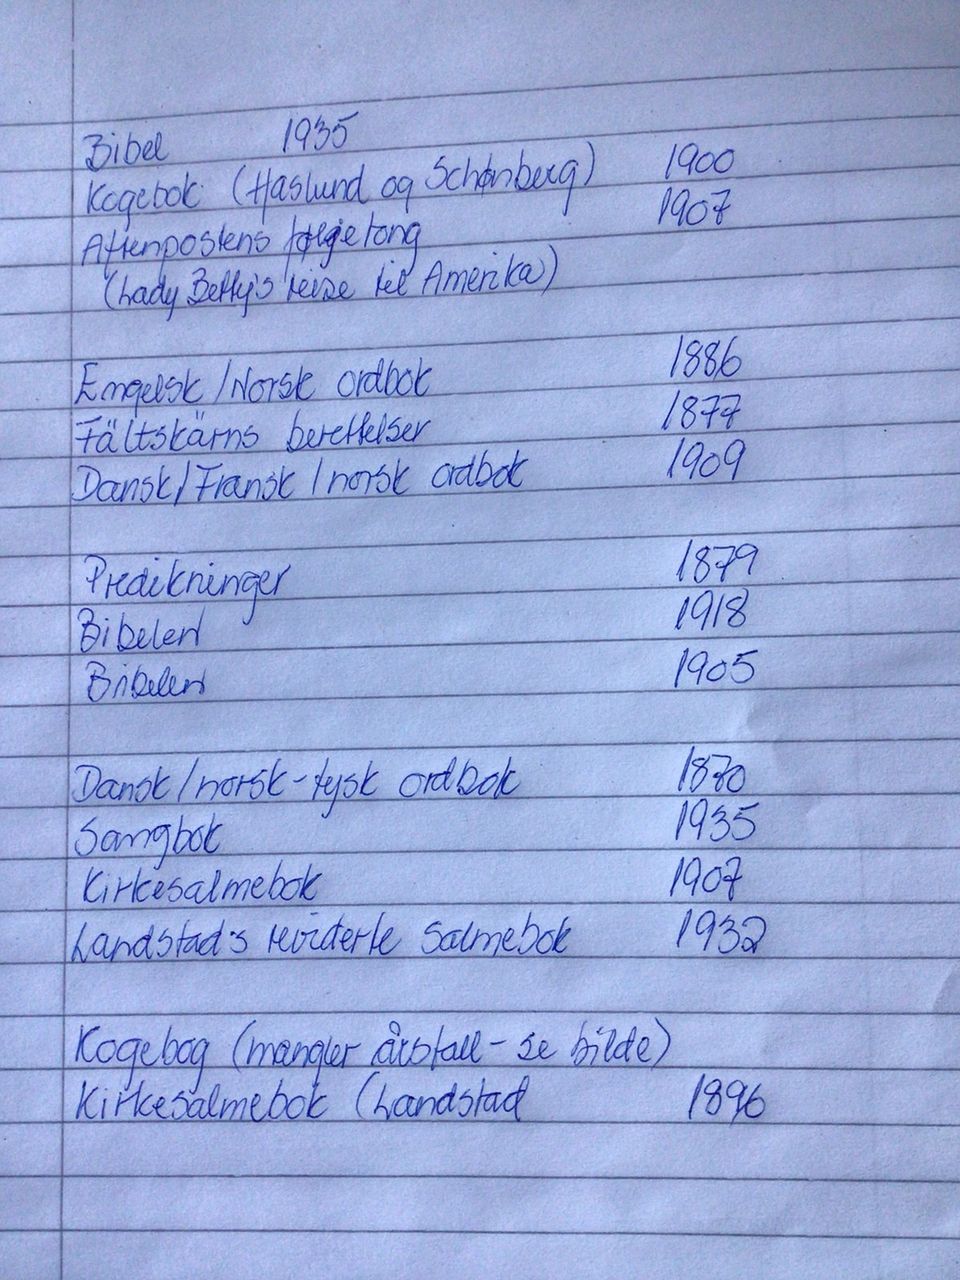 Bibel 1935
Kogebok (Haslund og Schønberg) 1900
Aftenpostens følgetong 1907
(Lady Betty's reise til Amerika)
Engelsk/Norsk ordbok 1886
Fältskärns berettelser 1877
Dansk/Fransk/norsk ordbok 1909
Predikninger 1879
Bibelen 1918
Bibelen 1905
Dansk/norsk-tysk ordbok 1870
Sangbok 1935
Kirkesalmebok 1907
Landstad's reviderte Salmebok 1932
Kogebog (mangler årstall - se bilde)
Kirkesalmebok (Landstad 1896